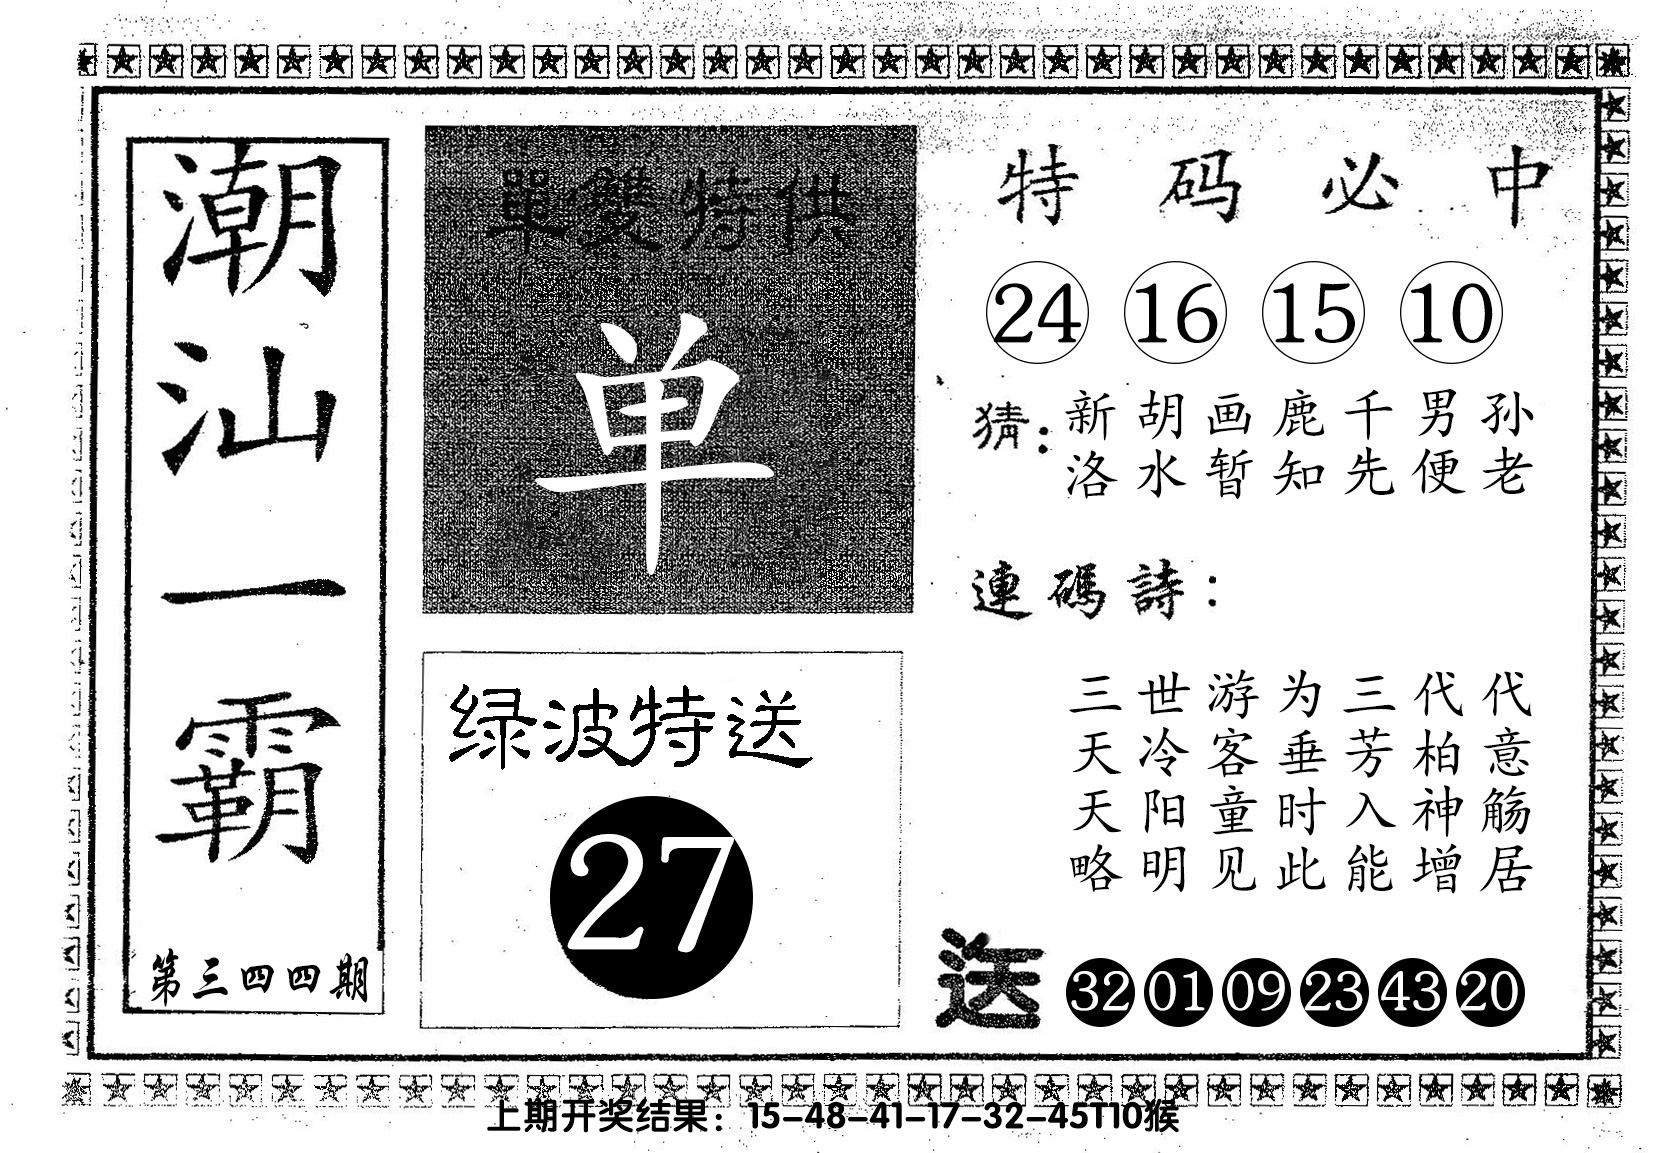 潮汕一霸
第三四四期
單雙特供
单
绿波特送
27
特码必中
24 16 15 10
猜：
新胡画鹿千男孙
洛水暂知先便老
連碼詩：
三世游为三代代
天冷客垂芳柏意
天阳童时入神觞
略明见此能增居
送 32 01 09 23 43 20
上期开奖结果：15-48-41-17-32-45T10猴